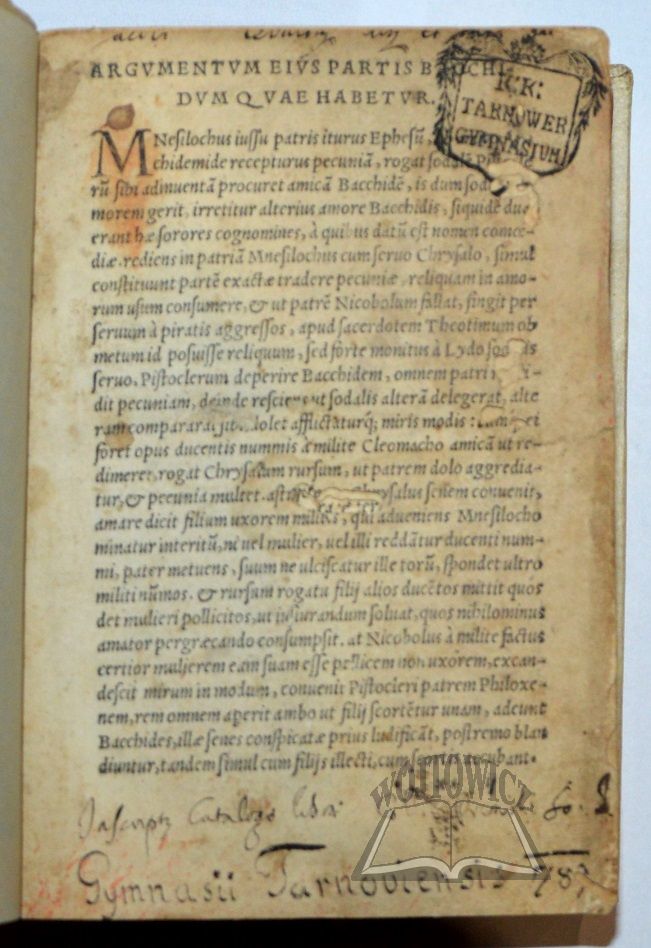 ARGVMENTVM EIVS PARTIS BACCHI
DVM QVAE HABETVR.
ICK:
TARNOWER
GYMNASIUM
MNesilochus iussu patris iturus Ephesũ,
chidemide recepturus pecuniã, rogat sodalẽ
rũ sibi adinuentã procuret amicã Bacchidẽ, is dum
morem gerit, irretitur alterius amore Bacchidis, siquidẽ duæ
erant hæ sorores cognomines, à quibus datũ est nomen comœ-
diæ. rediens in patriã Mnesilochus cum seruo Chrysalo, simul
constituunt partẽ exactæ tradere pecuniæ, reliquam in amo-
rum usum consumere, & ut patrẽ Nicobolum fallat, fingit per
seruum à piratis aggressos, apud sacerdotem Theotimum ob
metum id posuisse reliquum, sed forte monitus à Lydo
seruo, Pistoclerum deperire Bacchidem, omnem patri
dit pecuniam, deinde resciscunt sodalis alterã delegerat, alte
ram compararat sibi, dolet afflictaturq; miris modis:
foret opus ducentis nummis à milite Cleomacho amicã ut re-
dimeret, rogat Chrysalum rursum, ut patrem dolo aggredia-
tur, & pecunia multet. Chrysalus senem conuenit,
amare dicit filium uxorem militis, qui adueniens Mnesilocho
minatur interitũ, ni uel mulier, uel illi reddãtur ducenti num-
mi, pater metuens, suum ne ulciscatur ille torũ, spondet ultro
militi nũmos. & rursum rogatu filij alios ducẽtos mittit quos
det mulieri pollicitos, ut iusiurandum soluat, quos nihilominus
amator pergræcando consumpsit. at Nicobolus à milite factus
certior mulierem eam suam esse pellicem non uxorem, excan-
descit mirum in modum, conuenit Pistocleri patrem Philoxe-
nem, rem omnem aperit ambo ut filij scortẽtur unam, adeunt
Bacchides, illæ senes conspicatæ prius ludificãt, postremo blan
diuntur, tandem simul cum filijs illecti, cum scortis accubant.
WÓJTOWICZ
Inscriptz Catalogo libr:
Gymnasii Tarnoviensis 178